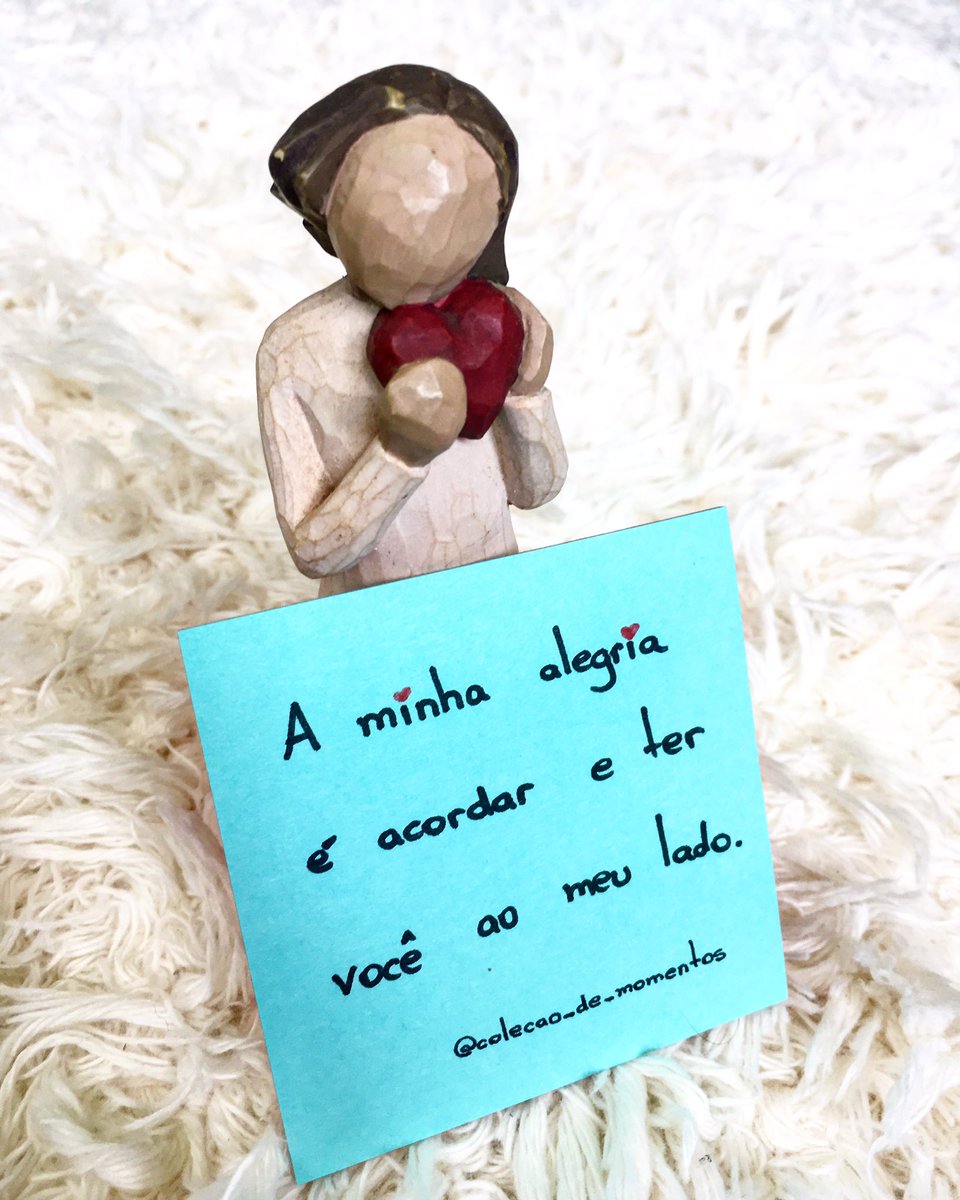 A minha alegria
é acordar e ter
você ao meu lado.
@colecao_de_momentos